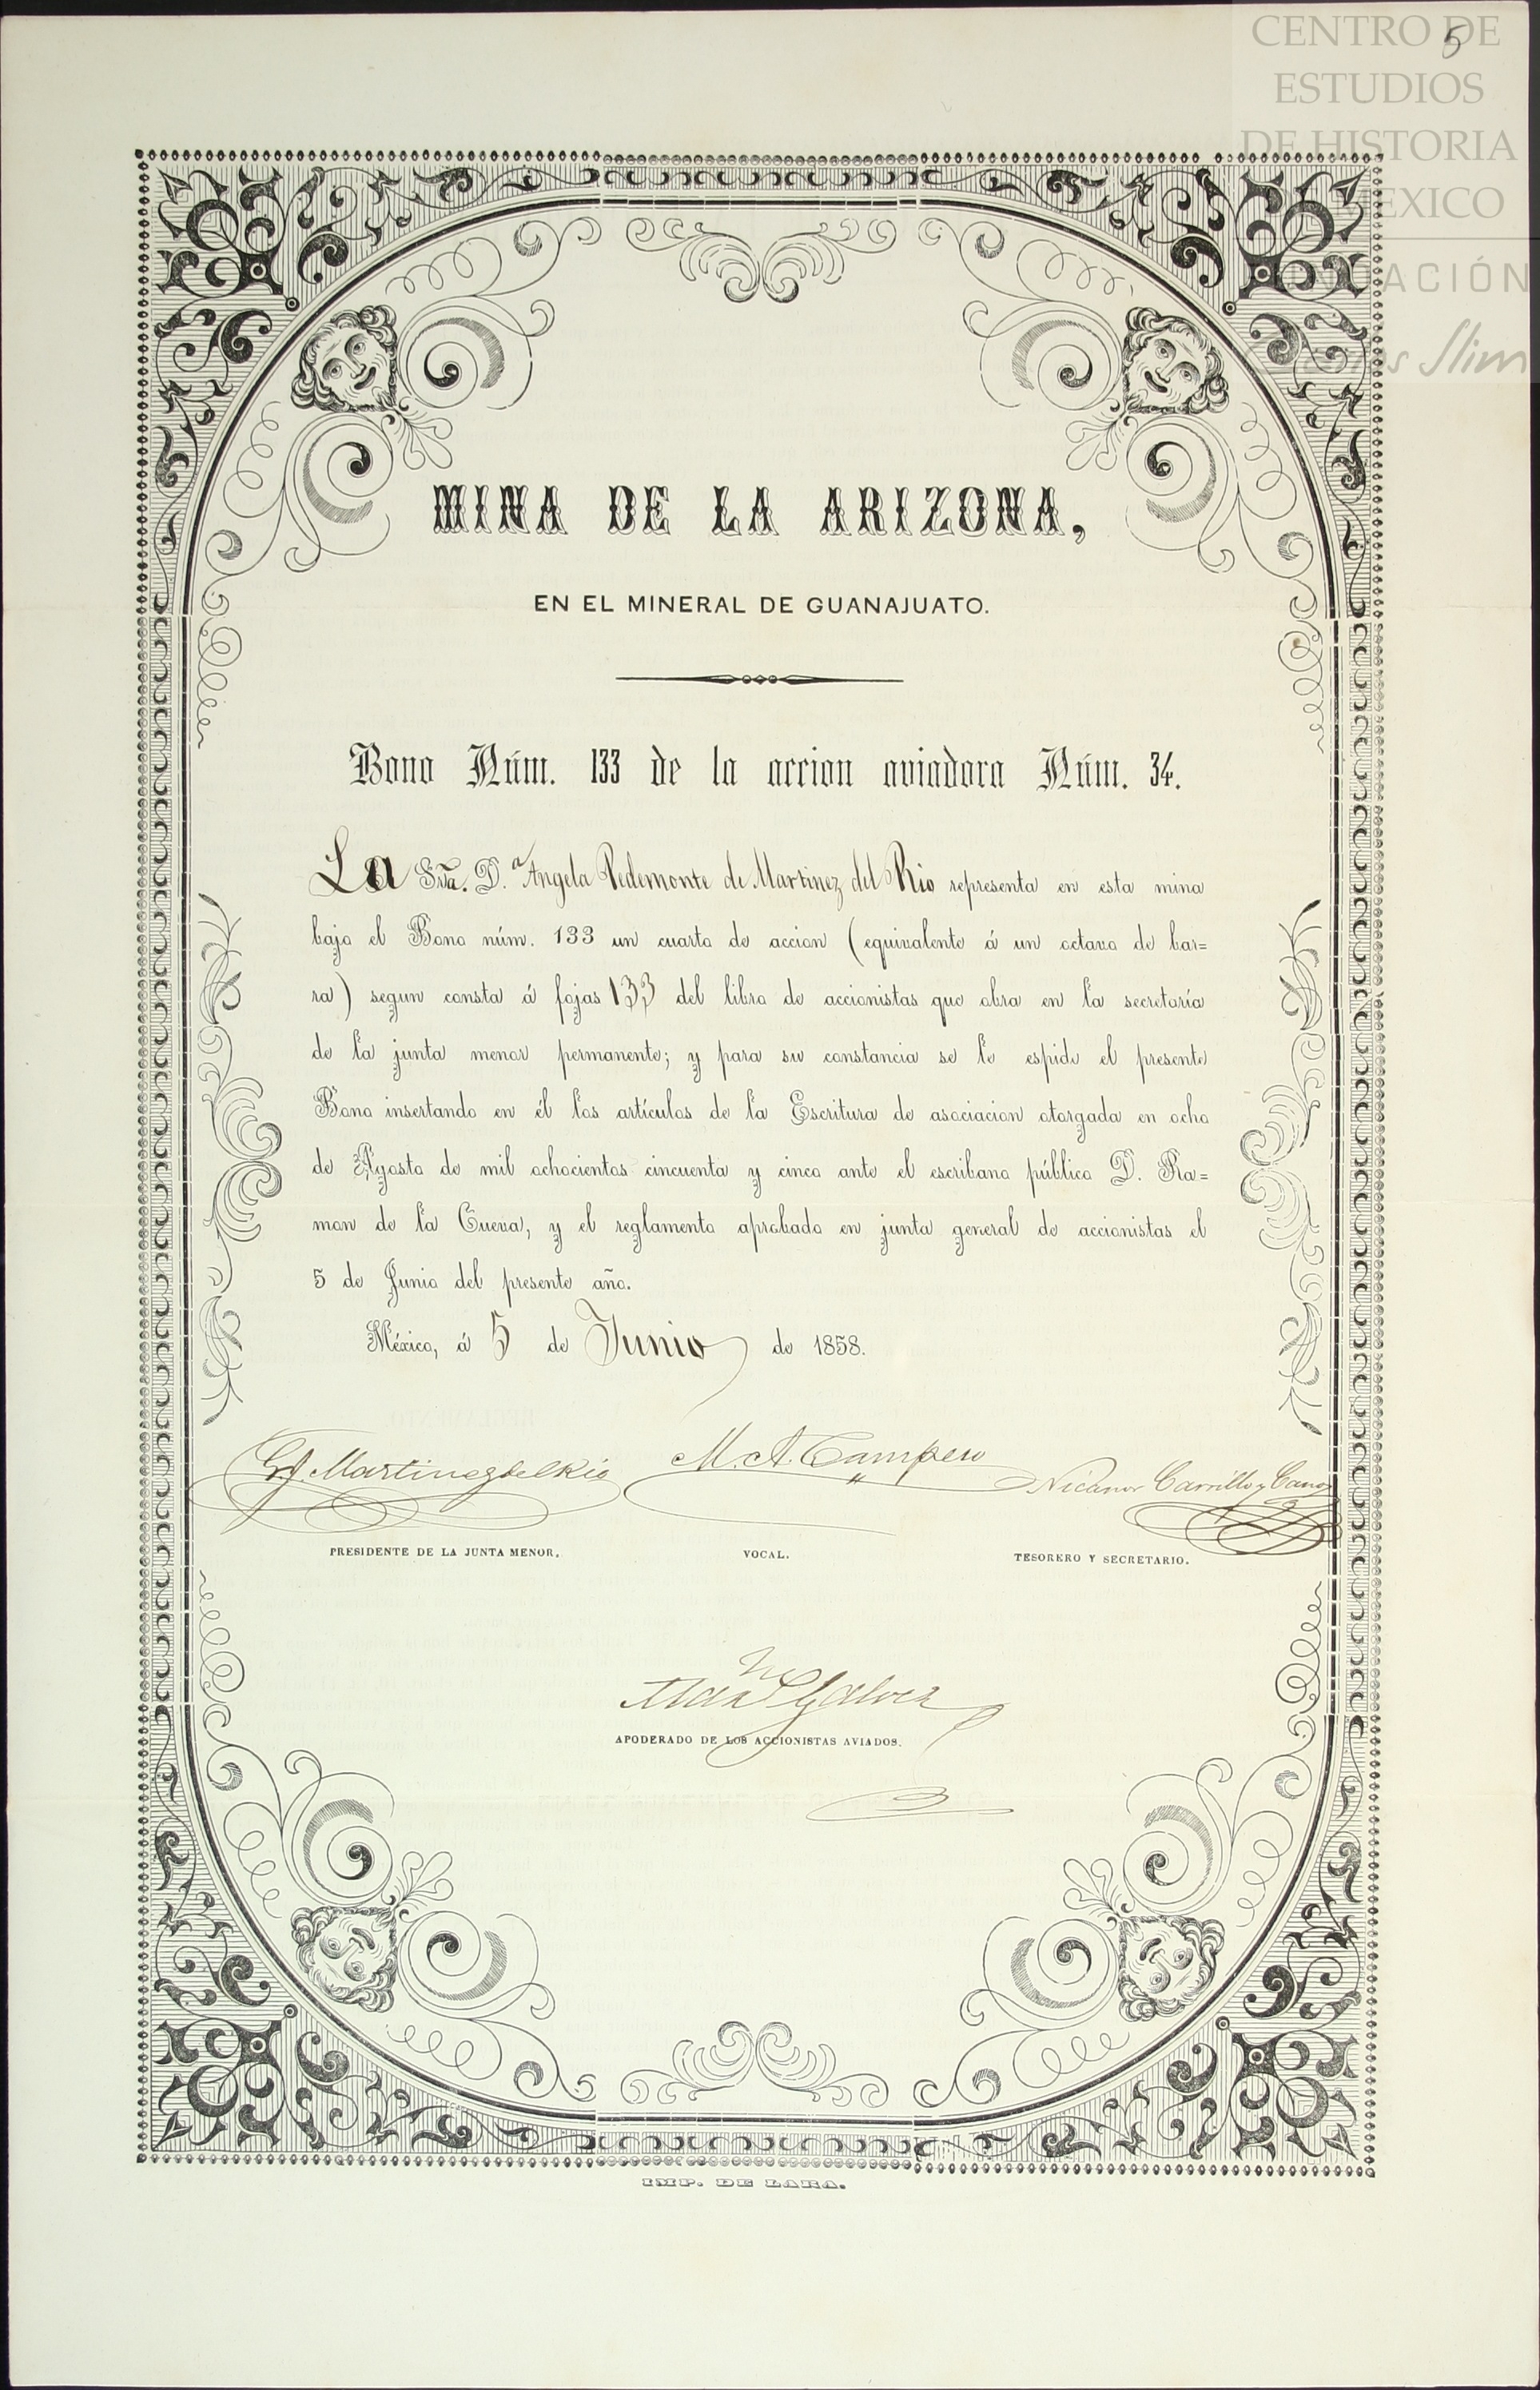 CENTRO DE
5
ESTUDIOS
DE HISTORIA
DE MEXICO
FUNDACIÓN
Carlos Slim
MINA DE LA ARIZONA,
EN EL MINERAL DE GUANAJUATO.
Bono Núm. 133 de la accion aviadora Núm. 34.
La Sra. D.ª Angela Pedemonte de Martinez del Rio representa en esta mina
bajo el Bono núm. 133 un cuarto de accion (equivalente á un octavo de bar=
ra) segun consta á fojas 133 del libro de accionistas que obra en la secretaría
de la junta menor permanente; y para su constancia se le espide el presente
Bono insertando en él los artículos de la Escritura de asociacion otorgada en ocho
de Agosto de mil ochocientos cincuenta y cinco ante el escribano público D. Ra=
mon de la Cueva, y el reglamento aprobado en junta general de accionistas el
5 de Junio del presente año.
México, á 5 de Junio de 1858.
Martinez del Rio
M. A. Campero
Nicanor Carrillo y Cano
PRESIDENTE DE LA JUNTA MENOR.
VOCAL.
TESORERO Y SECRETARIO.
Galvez
APODERADO DE LOS ACCIONISTAS AVIADOS.
IMP. DE LARA.